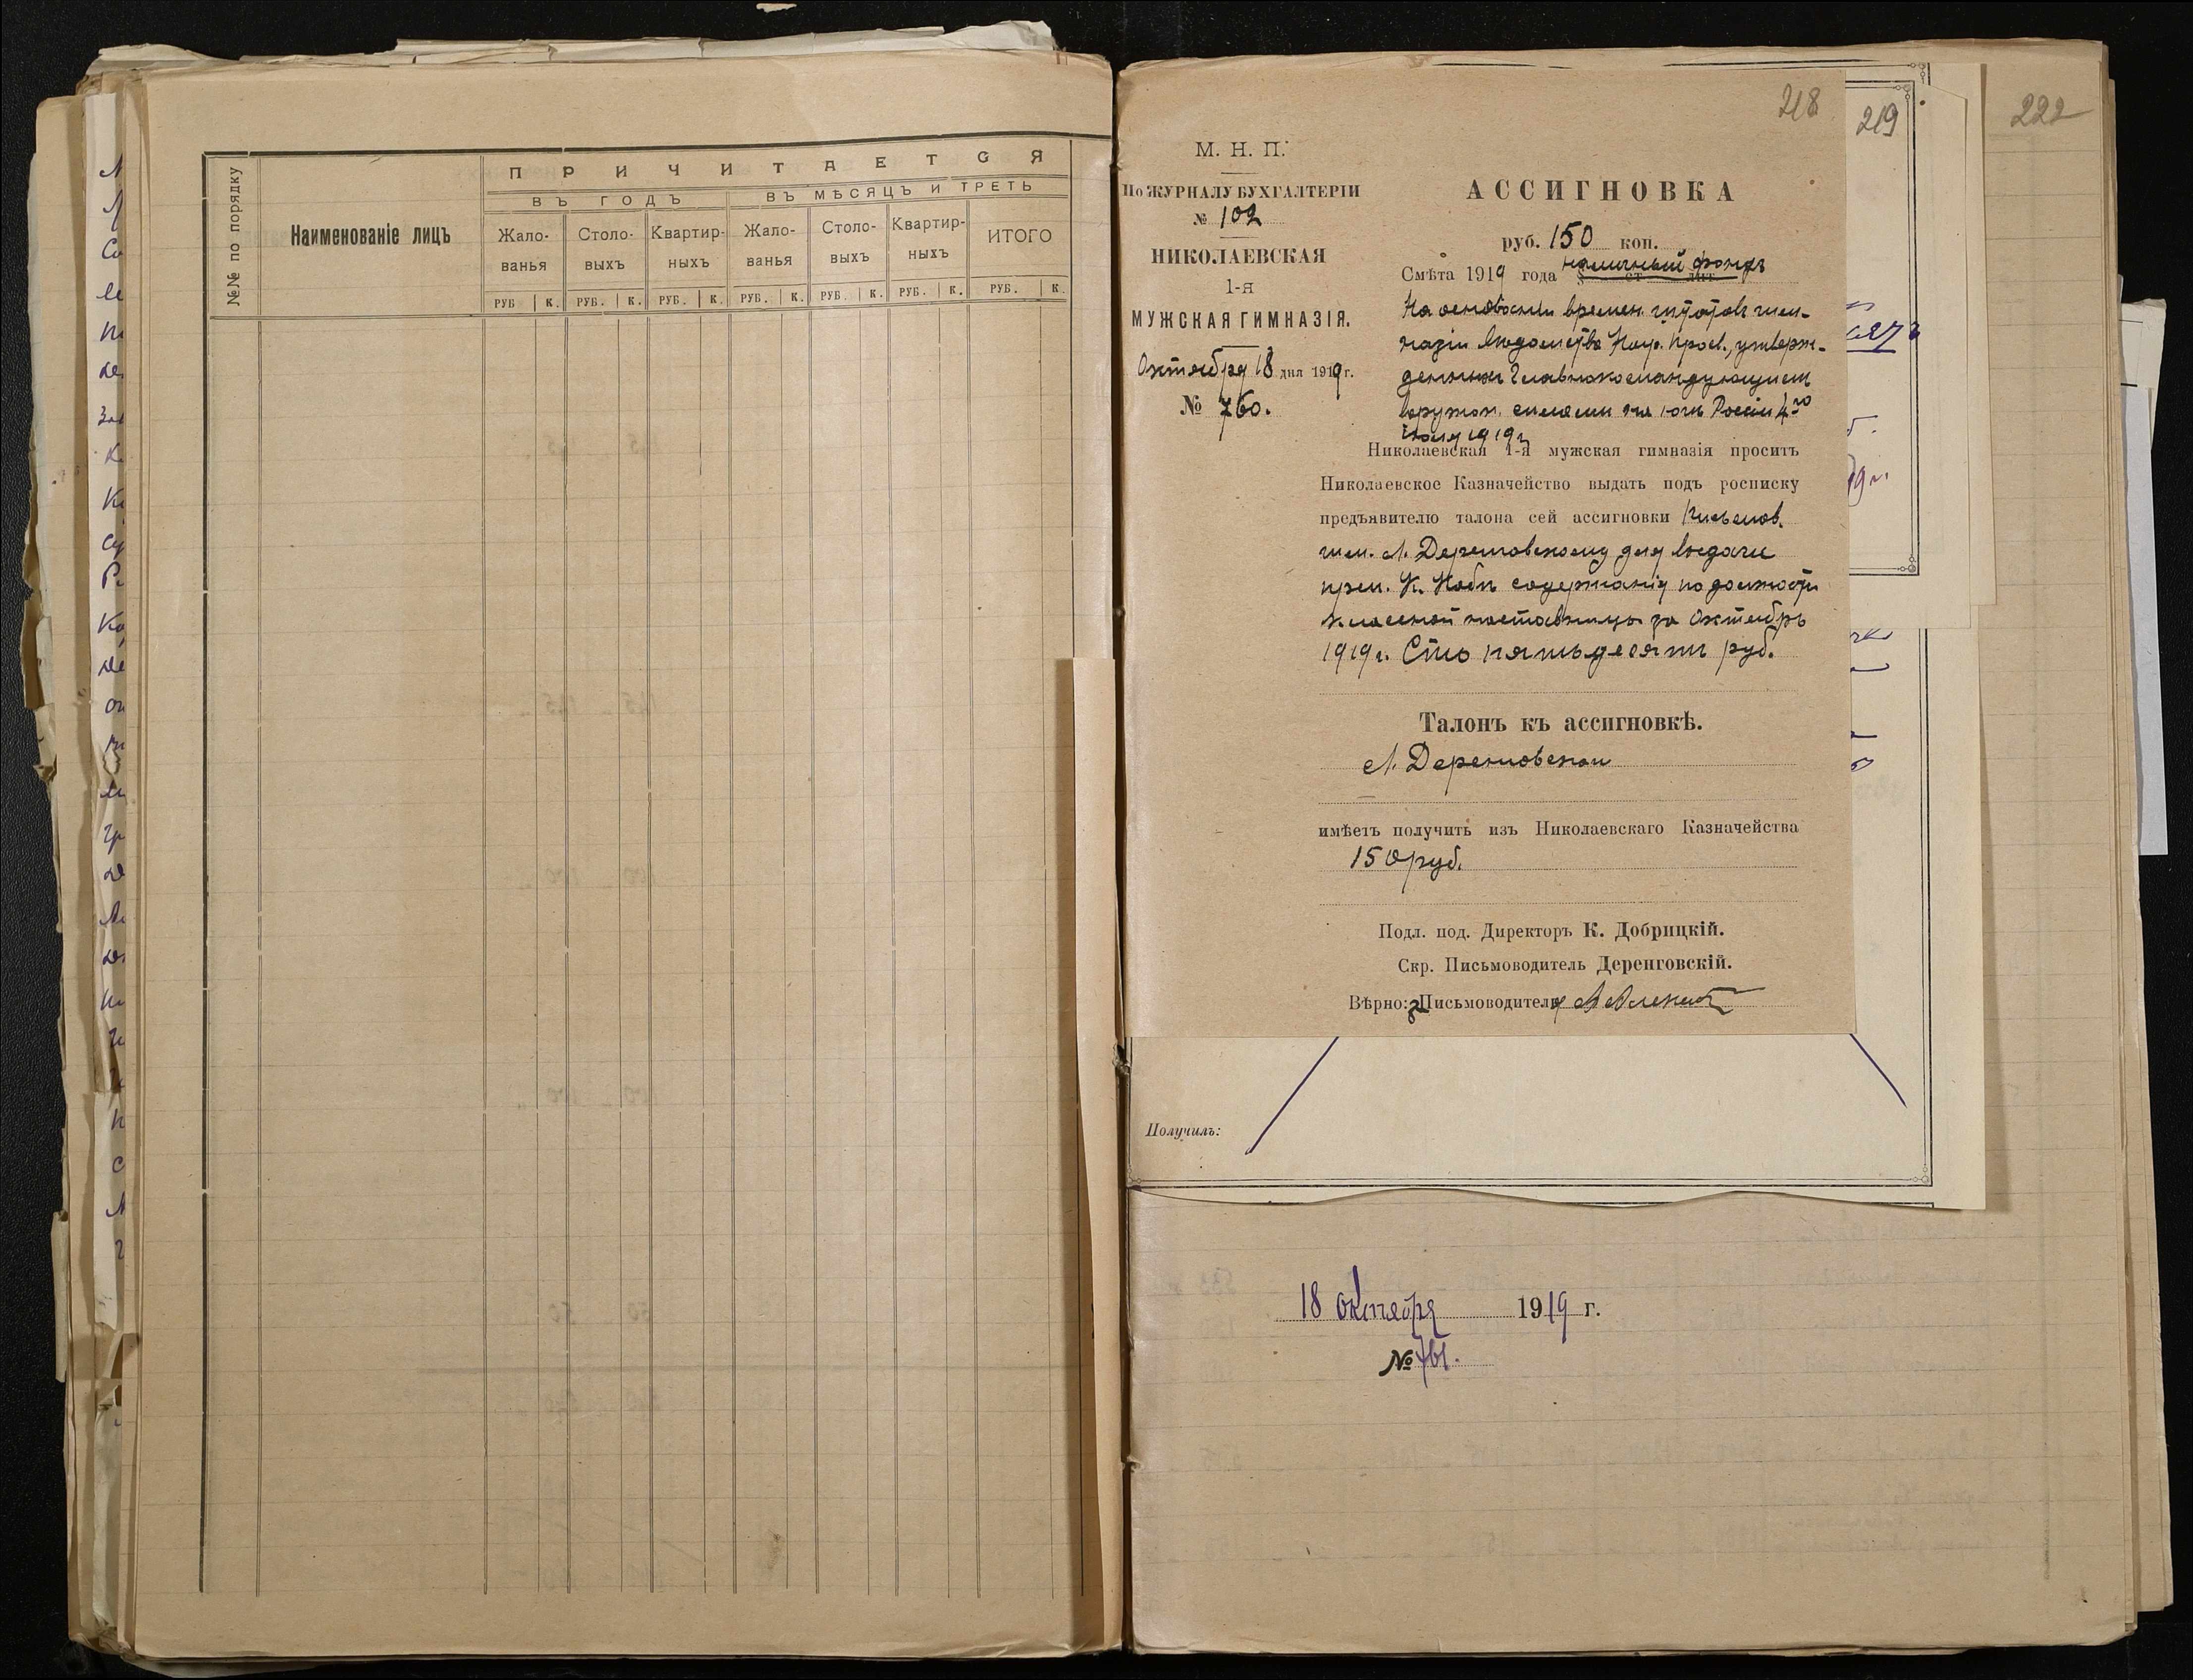 №№ по порядку
Наименованіе лицъ
ПРИЧИТАЕТСЯ
ВЪ ГОДЪ
ВЪ МѢСЯЦЪ И ТРЕТЬ
Жало-
ванья
Столо-
выхъ
Квартир-
ныхъ
Жало-
ванья
Столо-
выхъ
Квартир-
ныхъ
ИТОГО
РУБ К. РУБ. К. РУБ. К. РУБ. К. РУБ. К. РУБ. К. РУБ. К.
218
219
222
М. Н. П.
По ЖУРНАЛУ БУХГАЛТЕРІИ
№ 102
НИКОЛАЕВСКАЯ
1-я
МУЖСКАЯ ГИМНАЗІЯ.
Октября 18 дня 1919 г.
№ 760.
АССИГНОВКА
руб. 150 коп.
Смѣта 1919 года § ст. лит.
На основаніи времен. штатовъ гим-
назіи Вѣдомства Нар. Просв., утверж-
денныхъ Главнокомандующимъ
Вооруж. силами на югѣ Россіи 4го
1919 г.
Николаевская 1-я мужская гимназія проситъ
Николаевское Казначейство выдать подъ росписку
предъявителю талона сей ассигновки Письмов.
гим. Л. Деренговскому для выдачи
преп. К. содержанія по должности
классной наставницы за Октябрь
1919 г. Сто пятьдесятъ руб.
Талонъ къ ассигновкѣ.
Л. Деренговскій
имѣетъ получить изъ Николаевскаго Казначейства
150 руб.
Подл. под. Директоръ К. Добрицкій.
Скр. Письмоводитель Деренговскій.
Вѣрно: За Письмоводителя
Получилъ:
18 октября 1919 г.
№ 761.